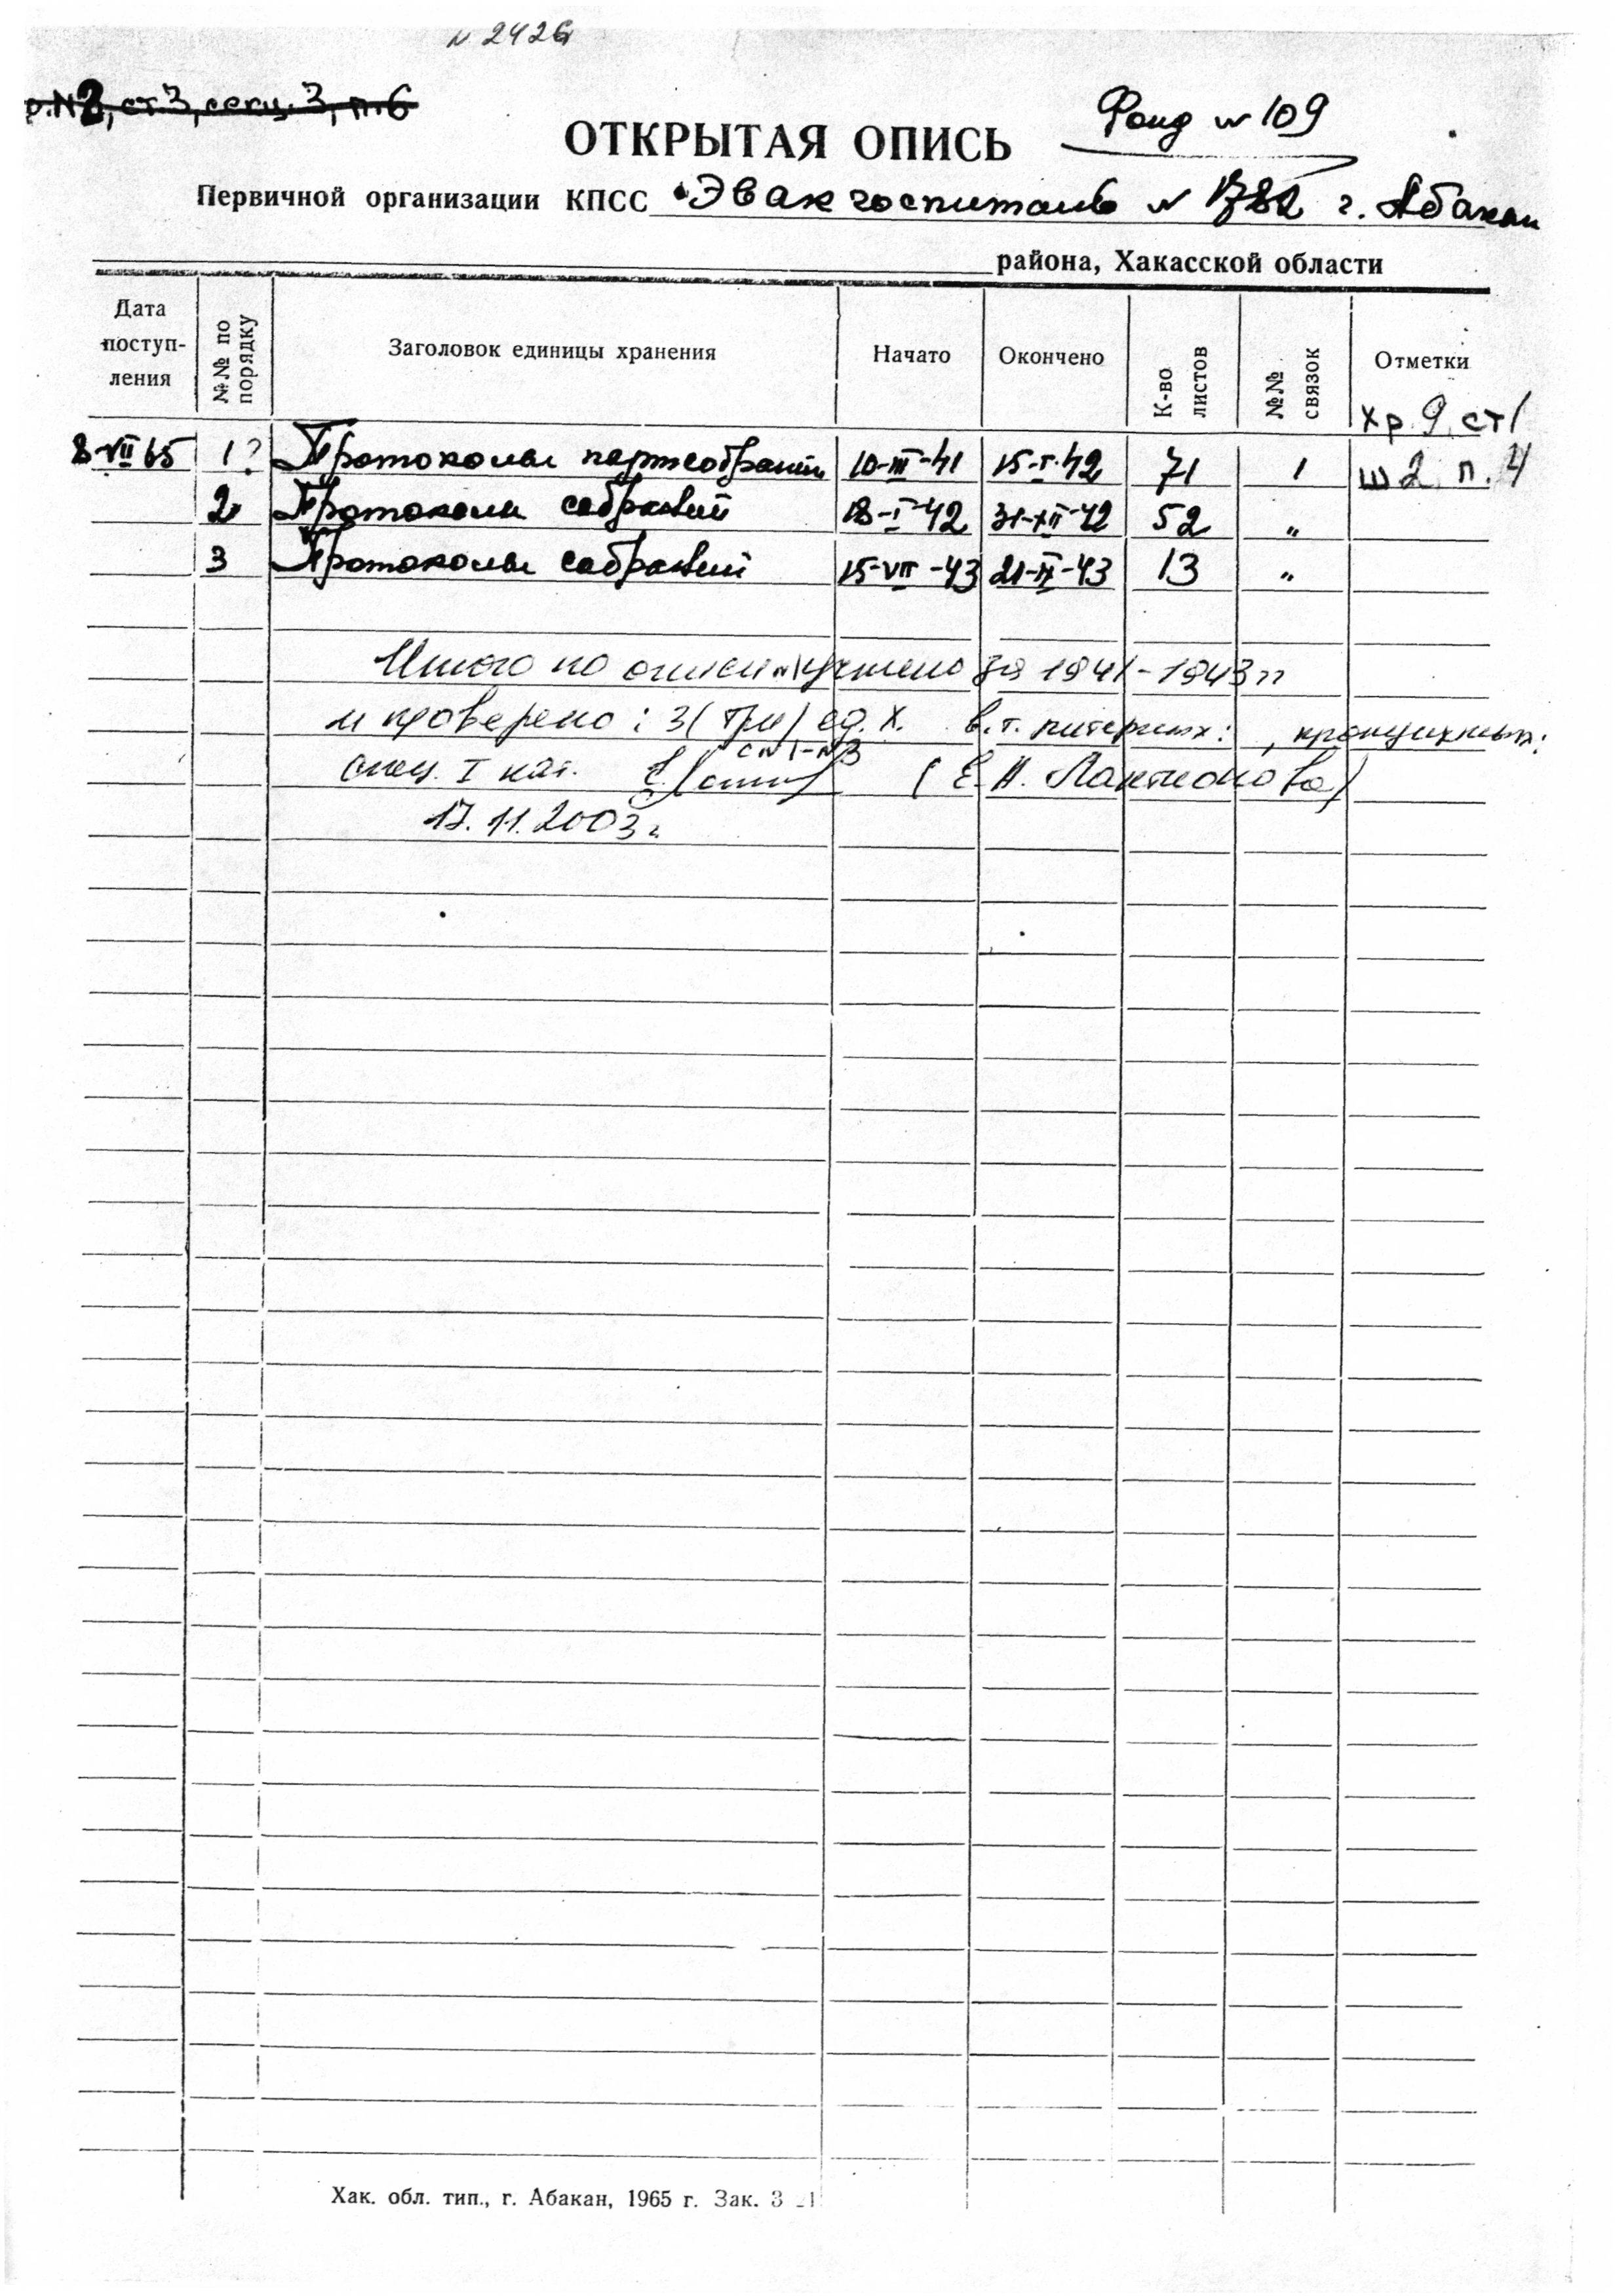 N 2426
р.N2, ст.3, секц. 3, п.6
Фонд N 109
ОТКРЫТАЯ ОПИСЬ
Первичной организации КПСС Эвакгоспиталь N 1782 г. Абакан
района, Хакасской области
Дата поступ-ления №№ по порядку Заголовок единицы хранения Начато Окончено К-во листов №№ связок Отметки
хр. 9 ст 1
8-VII 65 1 Протоколы партсобраний 10-III-41 15-I-42 71 1 ш 2 п. 4
2 Протоколы собраний 18-I-42 31-XII-42 52 "
3 Протоколы собраний 15-VII-43 21-IX-43 13 "
Итого по описи N 1 учтено за 1941-1943 гг
и проверено: 3 (три) ед. х. в.т. литерных: , пропущенных:
с N1-N3
спец. I кат. (Е.Н. Лактионова)
17.11.2003 г.
Хак. обл. тип., г. Абакан, 1965 г. Зак. 3 21